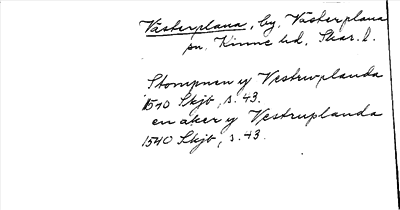 Västerplana, by, Västerplana
sn, Kinne hd, Skar. l.
Stompnen y Vestruplanda
1540 Skjb, s. 43.
en aker y Vestruplanda
1540 Skjb, s. 43.